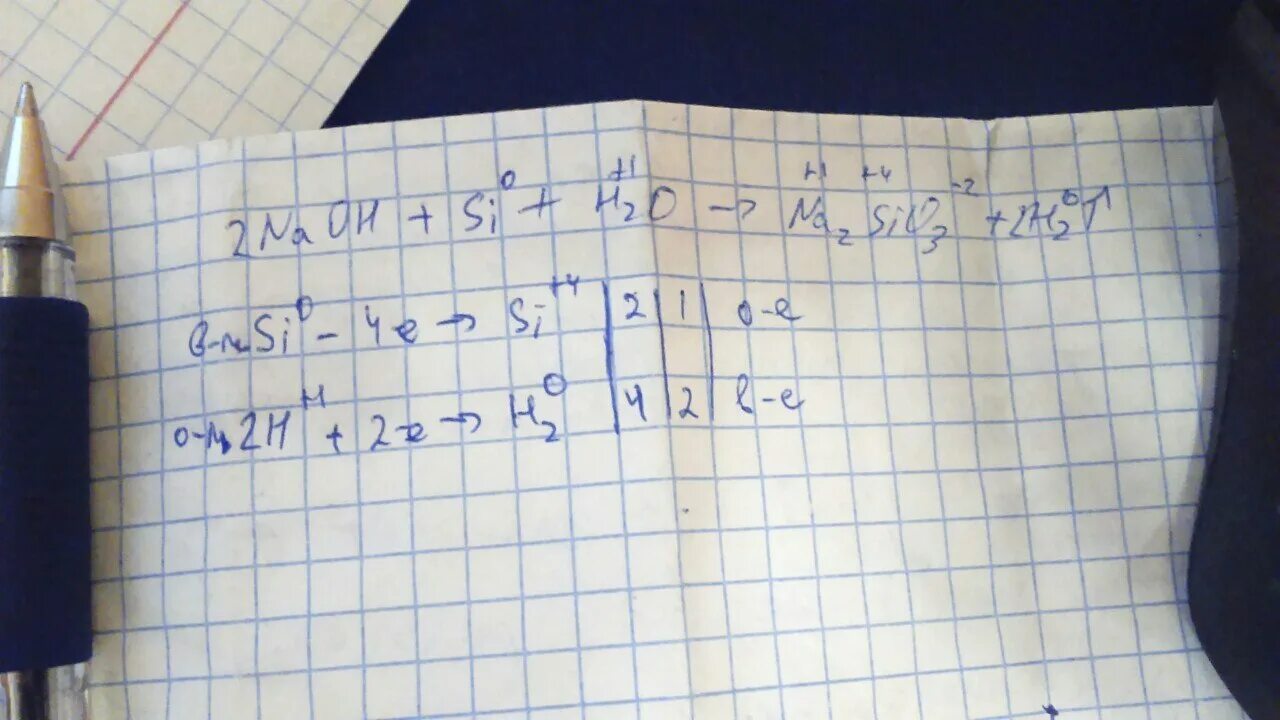 2NaOH + Si⁰ + H₂⁺¹O → Na₂⁺¹Si⁺⁴O₃⁻² + 2H₂⁰↑
в-ль Si⁰ - 4e → Si⁺⁴ | 2 | 1 | о-е
о-ль 2H⁺¹ + 2e → H₂⁰ | 4 | 2 | в-е